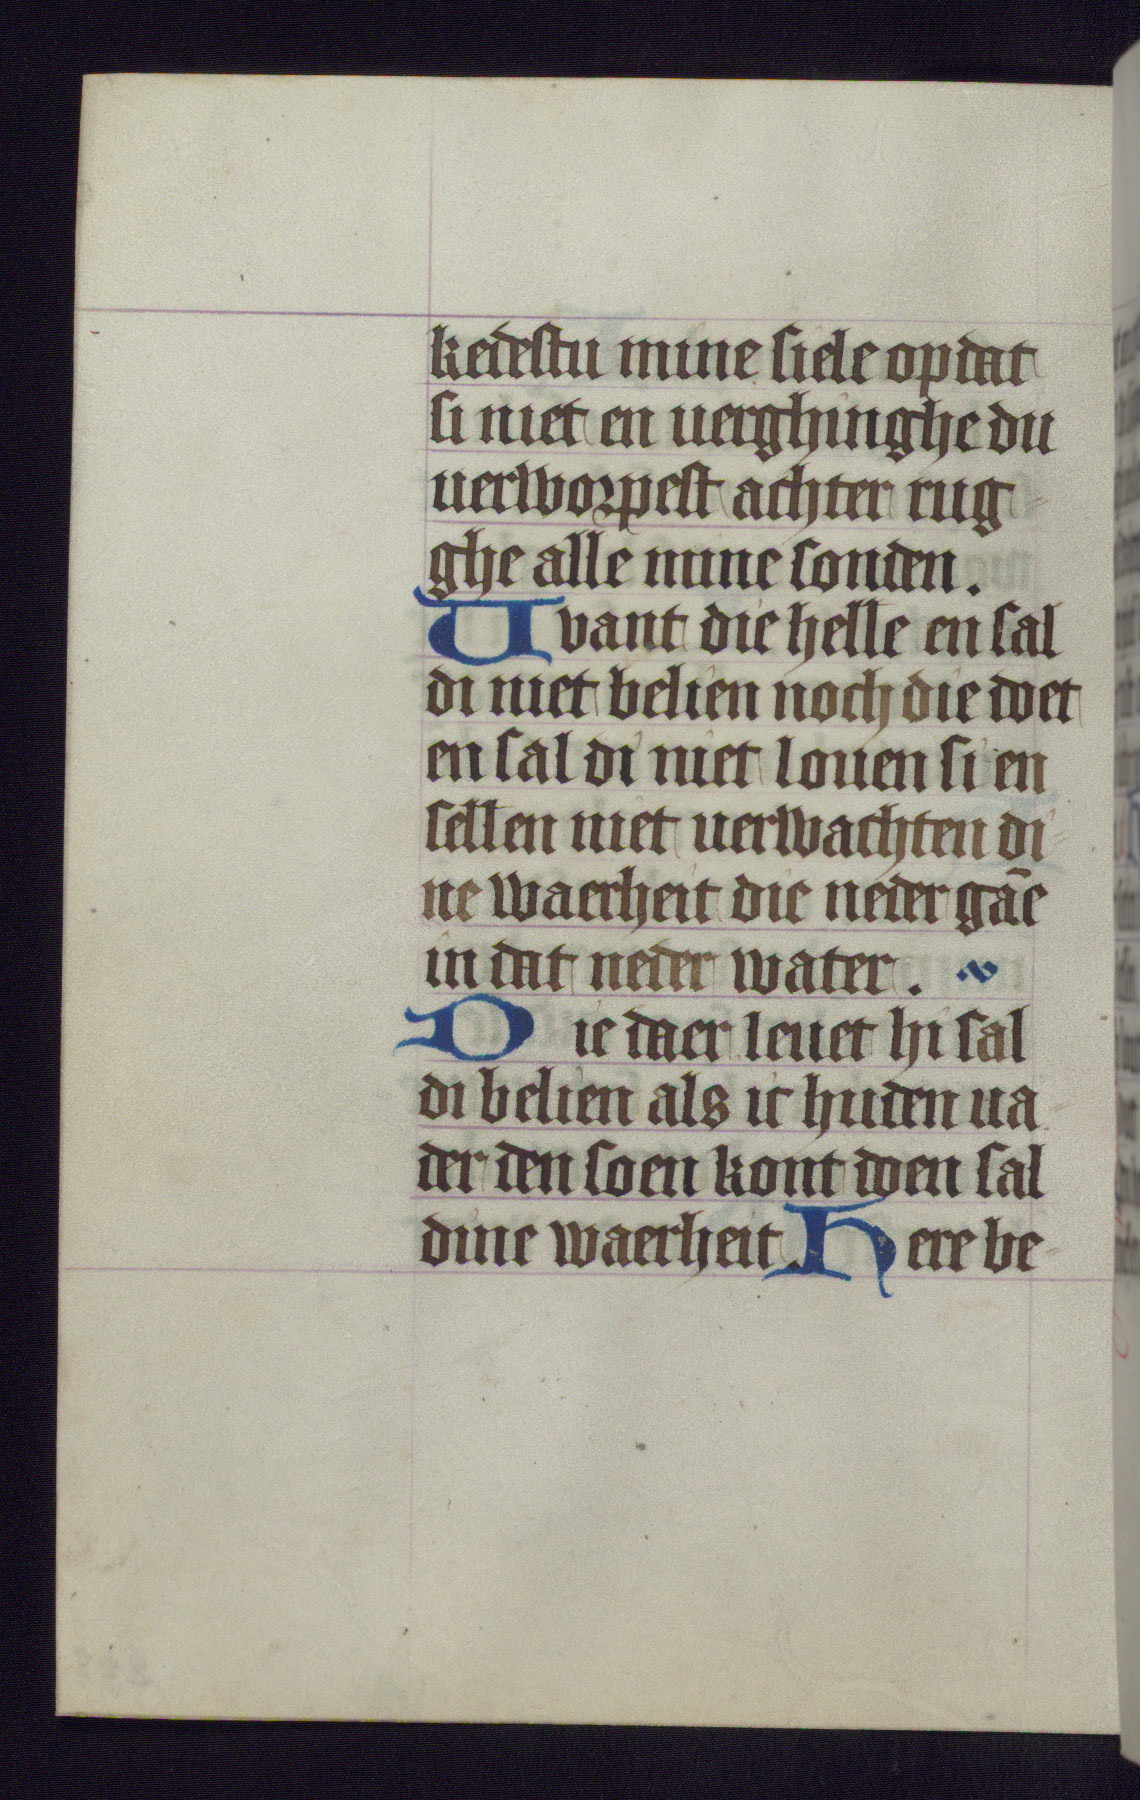 kedestu mine siele op dat
si niet en uerghinghe du
uerworpest achter rug
ghe alle mine sonden.
Uvant die helle en sal
di niet belien noch die doet
en sal di niet louen si en
sellen niet uerwachten di
ne waerheit die neder gāe
in dat neder water.
Die daer leuet hi sal
di belien als ic huden ua
der den soen kont doen sal
dine waerheit. Here be